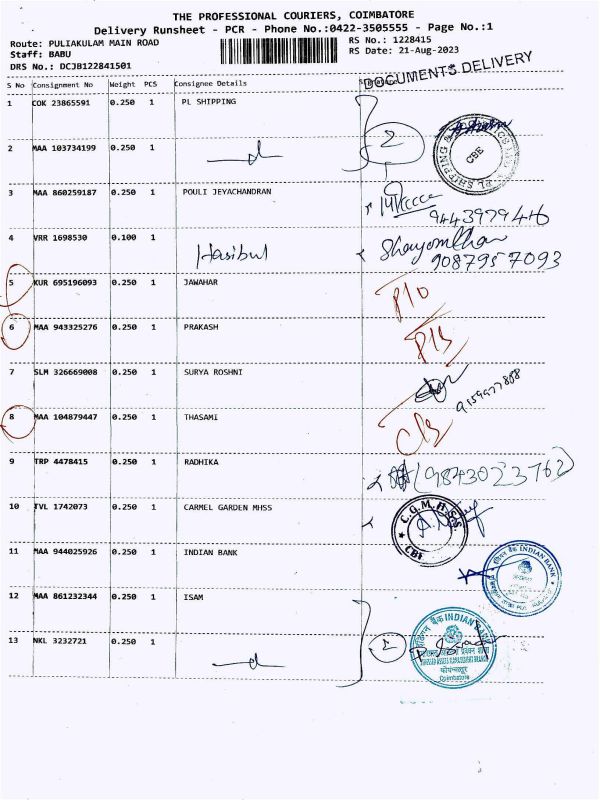 THE PROFESSIONAL COURIERS, COIMBATORE
Delivery Runsheet - PCR - Phone No.:0422-3505555 - Page No.:1
Route: PULIAKULAM MAIN ROAD RS No.: 1228415
Staff: BABU RS Date: 21-Aug-2023
DRS No.: DCJB122841501
DOCUMENTS DELIVERY
S No Consignment No Weight PCS Consignee Details Signature
1 COK 23865591 0.250 1 PL SHIPPING
2 MAA 103734199 0.250 1 2
PL SHIPPING & CBE
3 MAA 860259187 0.250 1 POULI JEYACHANDRAN
9443979446
4 VRR 1698530 0.100 1 Hasibul
9087957093
5 KUR 695196093 0.250 1 JAWAHAR
6 MAA 943325276 0.250 1 PRAKASH
7 SLM 326669008 0.250 1 SURYA ROSHNI
8 MAA 104879447 0.250 1 THASAMI
9 TRP 4478415 0.250 1 RADHIKA (9843023762)
10 TVL 1742073 0.250 1 CARMEL GARDEN MHSS
C.G.M.H.S.S. CBE
11 MAA 944025926 0.250 1 INDIAN BANK
इंडियन बैंक INDIAN BANK
12 MAA 861232344 0.250 1 ISAM
13 NKL 3232721 0.250 1 2
इंडियन बैंक INDIAN BANK
कोयम्बत्तूर
Coimbatore